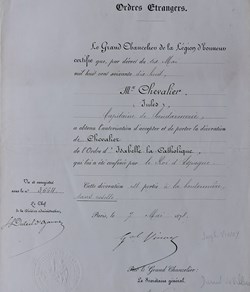 Ordres Etrangers.
Le Grand Chancelier de la Légion d'honneur
certifie que, par décret du dix Mai
mil huit cent soixante dix huit,
Mr. Chevalier
(Jules)
Capitaine de Gendarmerie
a obtenu l'autorisation d'accepter et de porter la décoration
de Chevalier
de l'Ordre d'Isabelle la Catholique
qui lui a été conférée par le Roi d'Espagne
Cette décoration se porte à la boutonnière,
Vu et enregistré
sous le n°
Le Chef
Paris, le Mai 187
Pour le Grand Chancelier:
Le Secrétaire général,